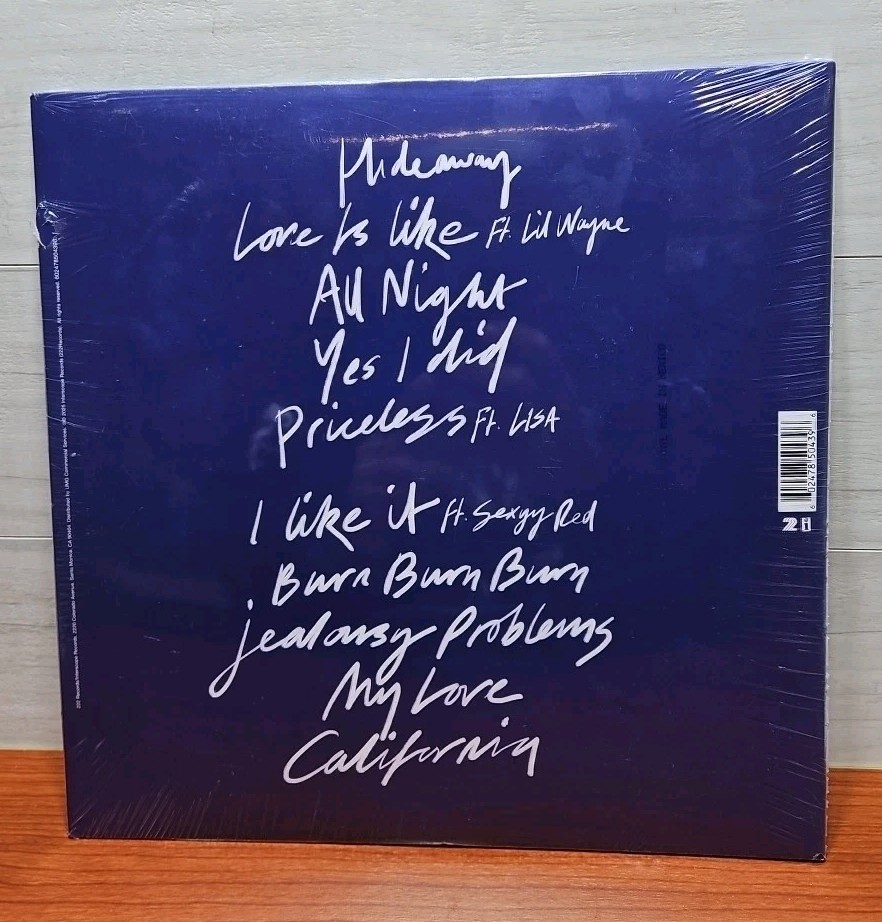 Hideaway
Love Is like Ft. Lil Wayne
All Night
Yes I did
Priceless Ft. LISA
I like it ft. Sexyy Red
Burn Burn Burn
jealousy Problems
My Love
California
6 02478 50439 6
2 i